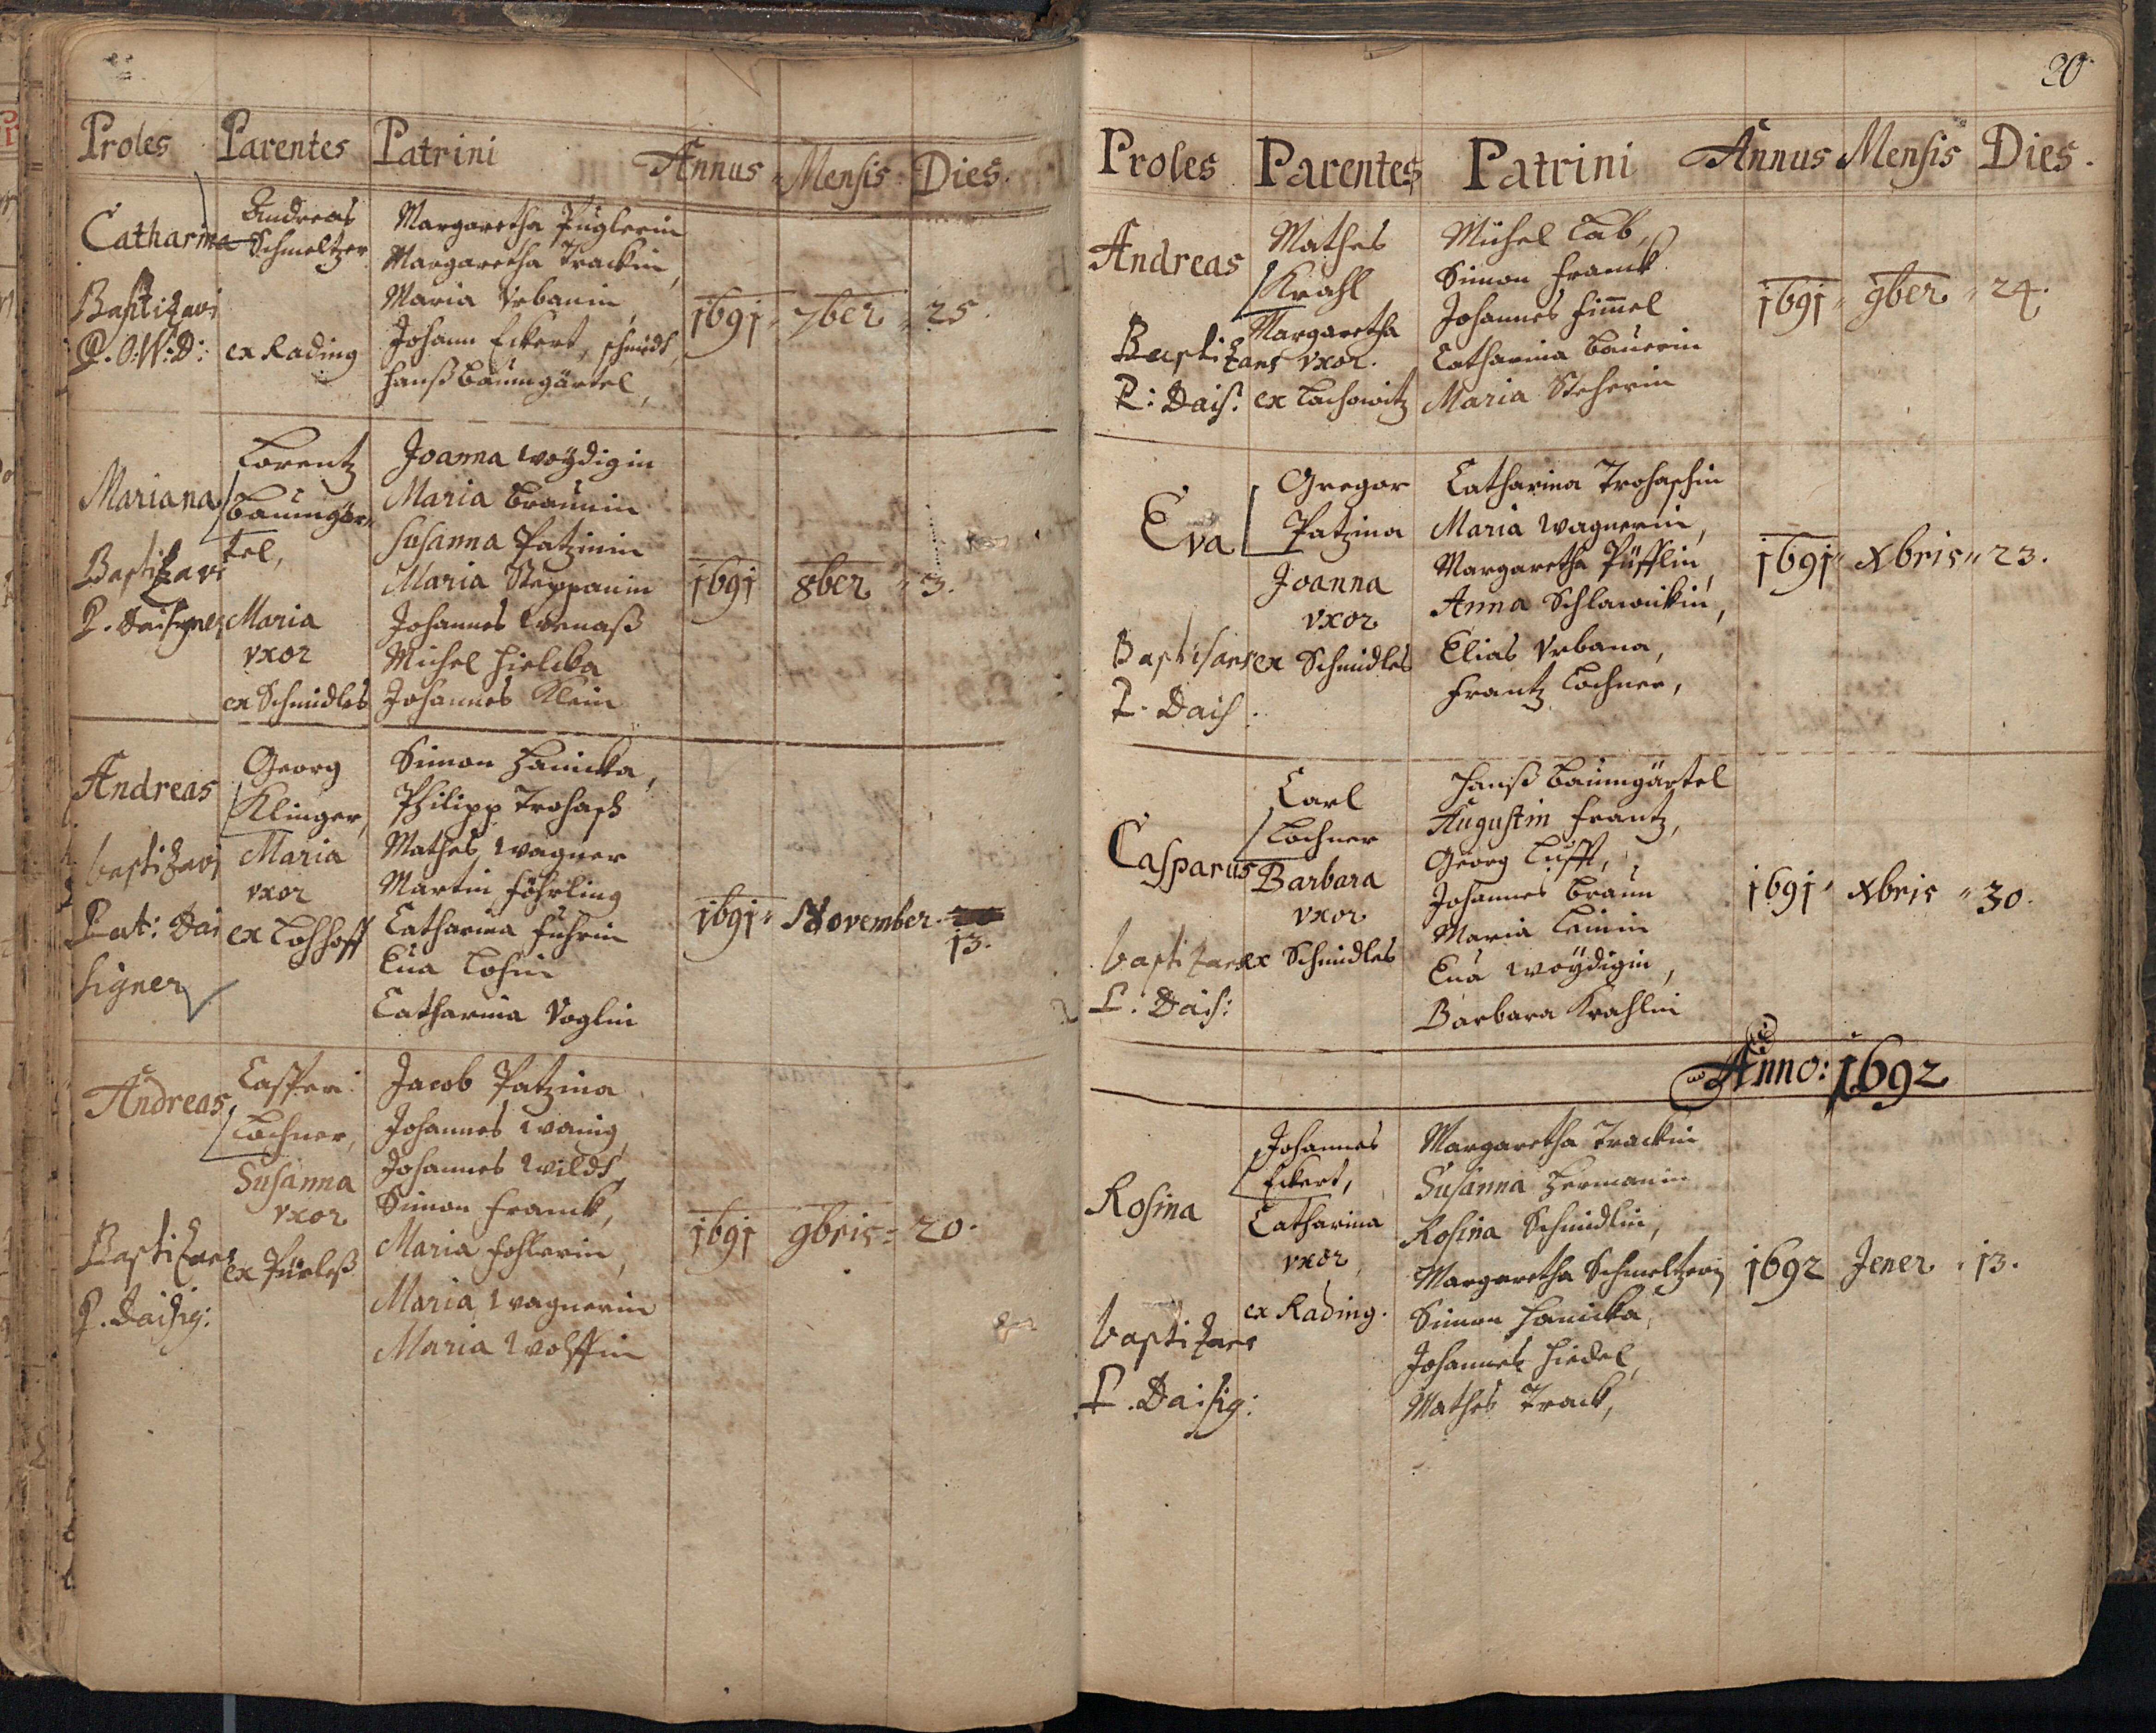 Proles Parentes Patrini Annus Mensis Dies.
Catharina Andreas Schmeltzer
Baptizavi
P. O:W:D: ex Rading
Margaretha Püglerin
Margaretha Trackin,
Maria Vrbanin,
Johann Eckert, schmidt,
Hanß Baumgärtel,
1691 7ber 25.
Mariana
Baptizavi
Lorentz
Baumgär
tel,
Maria
vxor
ex Schmidles
Joanna Woÿdigin
Maria Braunin
Susanna Patzinin
Maria Steppanin
Johannes
Michel Hielcka
Johannes Klein
1691 8ber 3.
Andreas
baptizavi
Pat: Dai
signer
Georg
Klinger,
Maria
vxor
ex Lohhoff
Simon Hanicka,
Philipp Trohasch
Mathes Wagner
Martin Föhrling
Catharina Fuhrin
Eua Lohin
Catharina Voglin
1691 November 13.
Andreas
Baptizans
P. Daisig:
Casper
Lochner,
Susanna
vxor
ex Pürleß
Jacob Patzina
Johannes Wanig
Johannes Wildt,
Simon Franck,
Maria Fohlerin,
Maria Wagnerin
Maria Wolffin
1691 9bris 20.
20
Proles Parentes Patrini Annus Mensis Dies.
Andreas
Baptizans
P: Dais:
Mathes
Krahl
Margaretha
vxor.
ex Lochowitz
Michel Lab,
Simon Franck
Johannes Himmel
Catharina Bauerin
Maria Steherin
1691 9ber 24.
Eva
Baptisans
P. Dais:
Gregor
Patzina
Joanna
vxor
ex Schmidles
Catharina Trohaschin
Maria Wagnerin,
Margaretha Püfflin,
Anna Schlawickin,
Elias Vrbana,
Frantz Lochner,
1691 Xbris 23.
Casparus
baptizans
P. Dais:
Carl
Lochner
Barbara
vxor
ex Schmidles
Hanß Baumgärtel
Augustin Frantz,
Georg Lufft,
Johannes Braun
Maria Leinin
Eua Woÿdigin,
Barbara Krahlin
1691 Xbris 30.
Anno: 1692
Rosina
baptizans
P. Daisig:
Johannes
Eckert,
Catharina
vxor
ex Rading.
Margaretha Trackin
Susanna Hermanin
Rosina Schmidlin,
Margaretha Schmeltzerin
Simon Hanicka,
Johannes Hiedel,
Mathes Track,
1692 Jener 13.